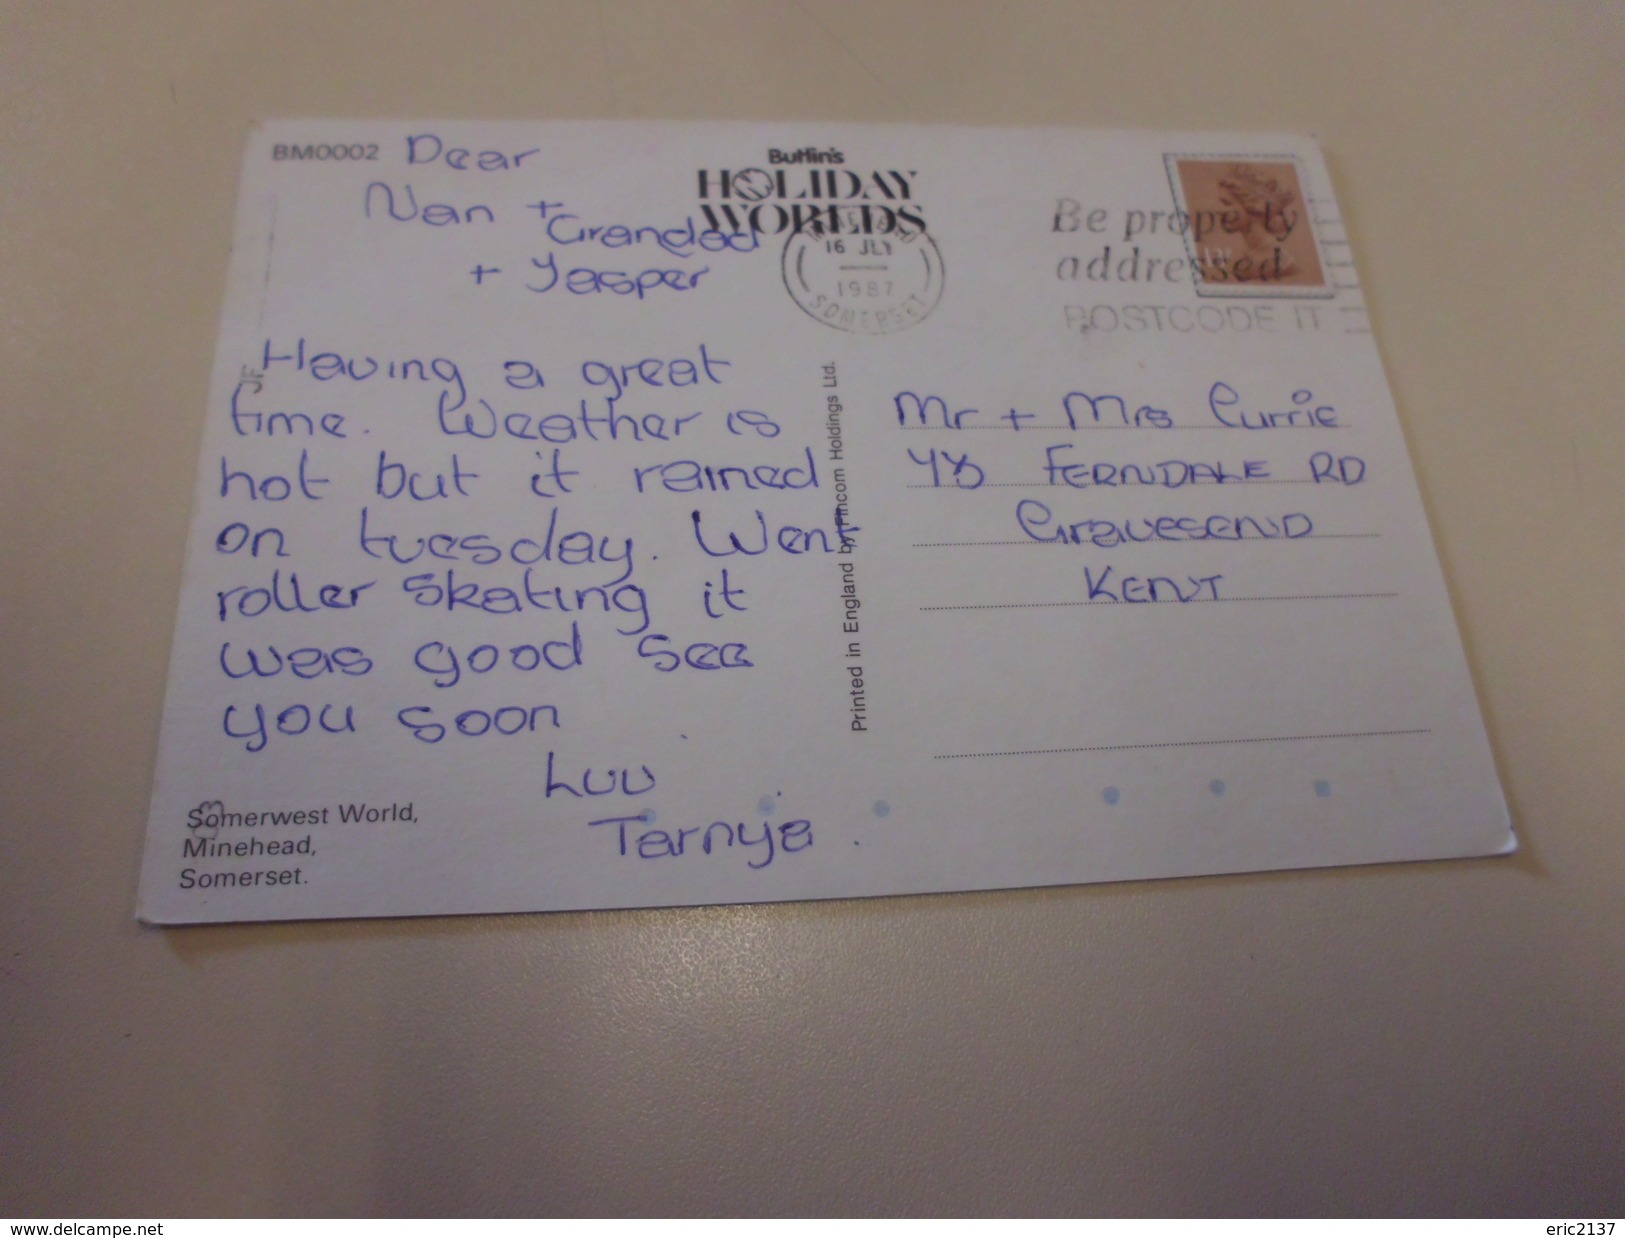 BM0002
Dear
Nan +
Grandad
+ Jasper
Having a great
time. Weather is
hot but it rained
on tuesday. Went
roller skating it
was good see
you soon
Luv
Tarnya.
Somerwest World,
Minehead,
Somerset.
Butlin's
HOLIDAY
WORLDS
MINEHEAD
16 JLY
1987
SOMERSET
Be properly
addressed
POSTCODE IT
Printed in England by Fincom Holdings Ltd.
Mr + Mrs Currie
FERNDALE RD
GravesEND
KENT
www.delcampe.net
eric2137